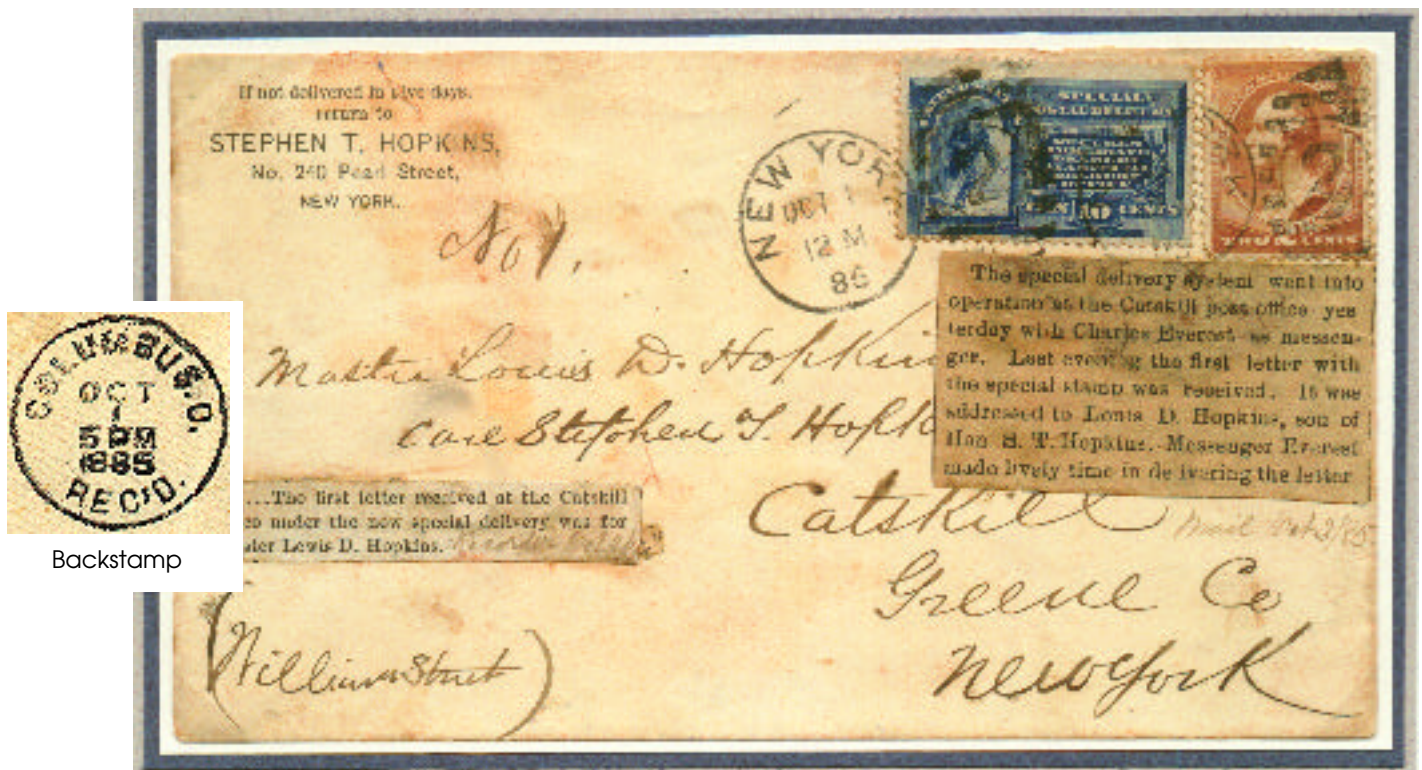 If not delivered in five days,
return to
STEPHEN T. HOPKINS,
No. 240 Pearl Street,
NEW YORK.
No 1.
NEW YORK
OCT 1
12 M
86
SPECIAL
POSTAL DELIVERY
TEN 10 CENTS
TWO 2 CENTS
The special delivery system went into
operation at the Catskill post office yes
terday with Charles Everest as messen-
ger. Last evening the first letter with
the special stamp was received. It was
addressed to Louis D. Hopkins, son of
Hon S. T. Hopkins. Messenger Everest
made lively time in delivering the letter
Master Louis D. Hopkin
Care Stephen T. Hopk
Catskill
Mail Oct 2/85
Greene Co
New York
....The first letter received at the Catskill
under the new special delivery was for
Lewis D. Hopkins. Recorder
(William Street)
COLUMBUS, O.
OCT
1
5 PM
1885
REC'D.
Backstamp